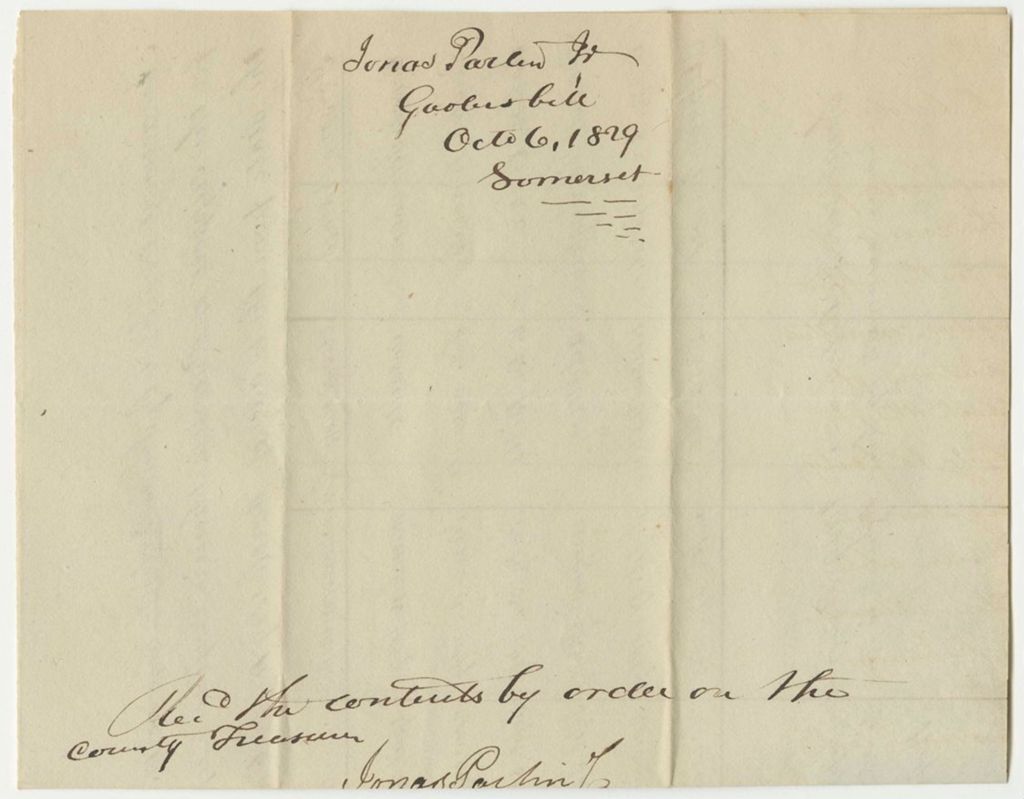 Jonas Parlin Jr
Gaolers bill
Octo 6, 1829
Somerset
Recd the contents by order on the
County Treasurer
Jonas Parlin Jr